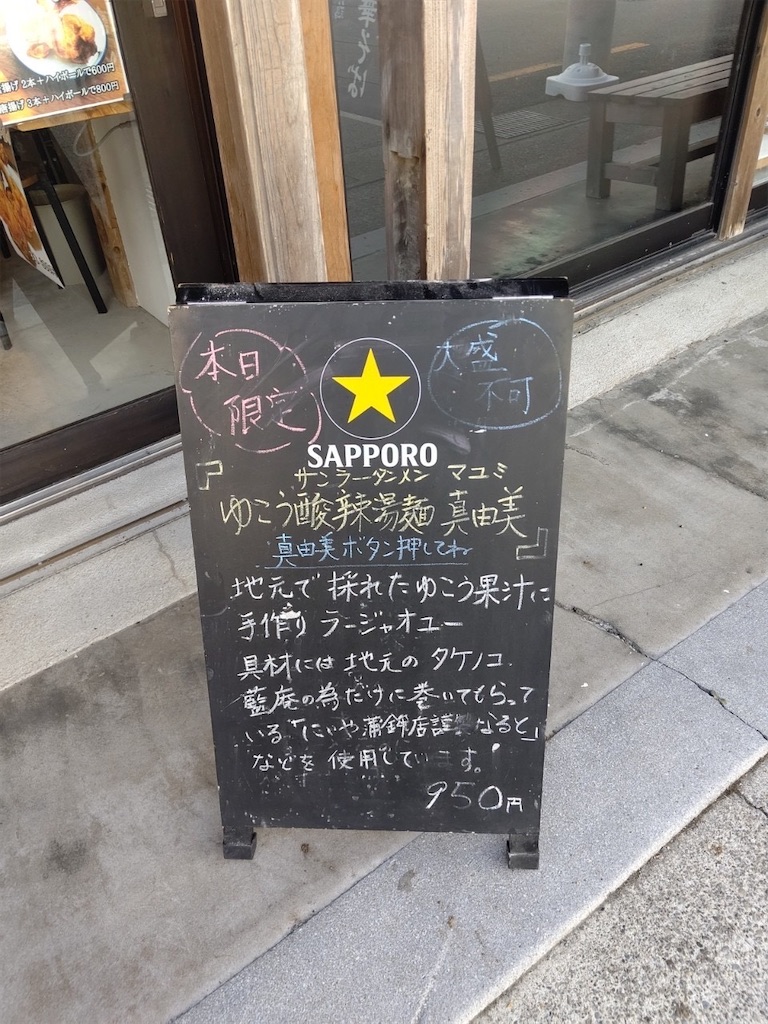 揚げ 2本+ハイボールで600円
唐揚げ 3本+ハイボールで800円
華そば
本日
限定
大盛
不可
SAPPORO
サンラータンメン マユミ
『ゆこう酸辣湯麺 真由美』
真由美ボタン押してね
地元で採れたゆこう果汁に
手作りラージャオユー
具材には地元のタケノコ
藍庵の為だけに巻いてもらって
いる「にいや蒲鉾店謹製なると」
などを使用しています。
950円